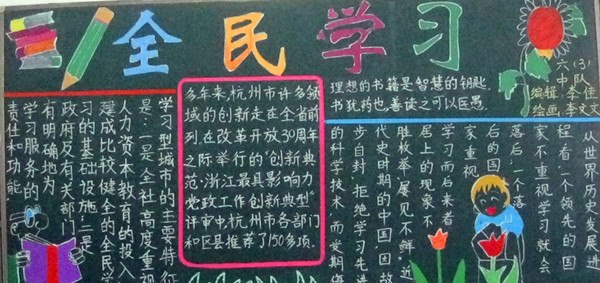 全民学习
学习型城市的主要特征
是:一是全社高度重视
人力资本教育的投入
建成比较健全的全民学
习的基础设施;二是
政府及有关部门
有明确地为
学习服务的
责任和功能
多年来,杭州市许多领
域的创新走在全省前
列,在改革开放30周年
之际举行的"创新典
范·浙江最具影响力
党政工作创新典型"
评审中,杭州市各部门
和区县推荐了150多项.
理想的书籍是智慧的钥匙
书犹药也,善读之可以医愚.
六(3)
中队
编辑:李佳
绘画:李文文
从世界历史发展进
程看,一个领先的国
家不重视学习就会
落后,一个落
后的国
家重视
学习而后来者
居上的现象不
胜枚举,屡见不鲜,近
代史时期的中国因故
步自封,拒绝学习先进
的科学技术,而受期侮